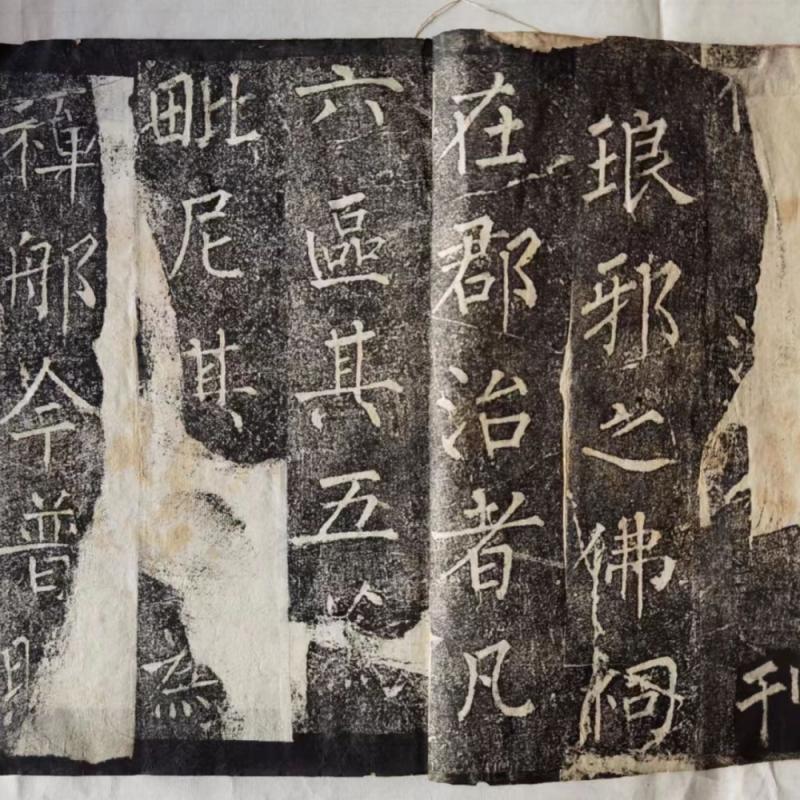 刊
琅邪之佛祠
在郡治者凡
六區其五為
毗尼其為
禪那今普